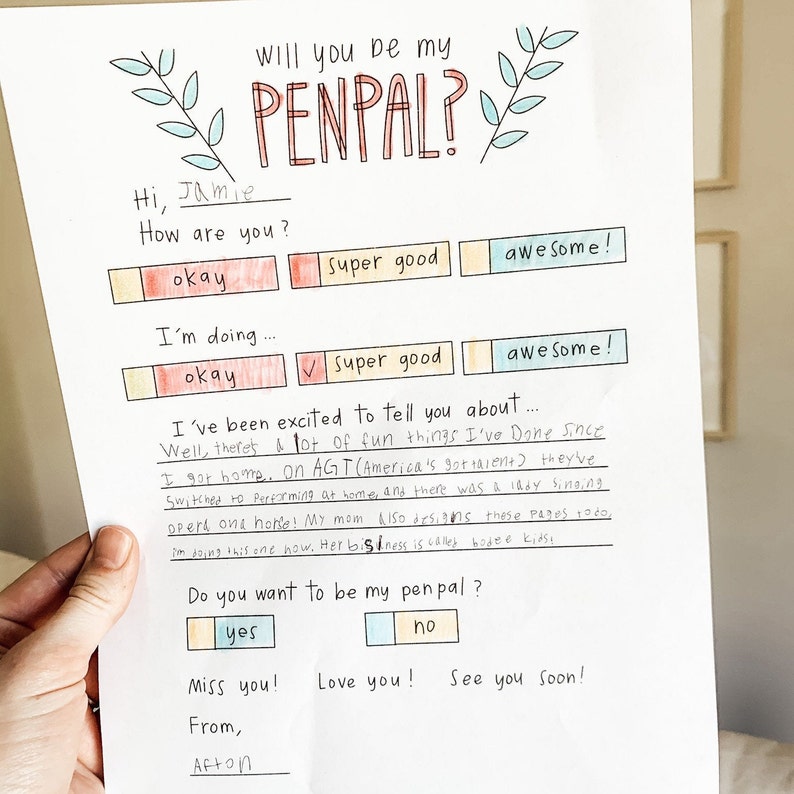 will you be my
PENPAL?
Hi, Jamie
How are you?
okay super good awesome!
I'm doing...
okay ✓ super good awesome!
I've been excited to tell you about...
Well, there's a lot of fun things I've Done since
I got home. On AGT (America's got talent) they've
Switched to Performing at home, and there was a lady singing
opera on a horse! My mom also designs these pages to do,
i'm doing this one now. Her bisiness is called bodee kids!
Do you want to be my penpal?
yes no
Miss you! Love you! See you soon!
From,
Afton